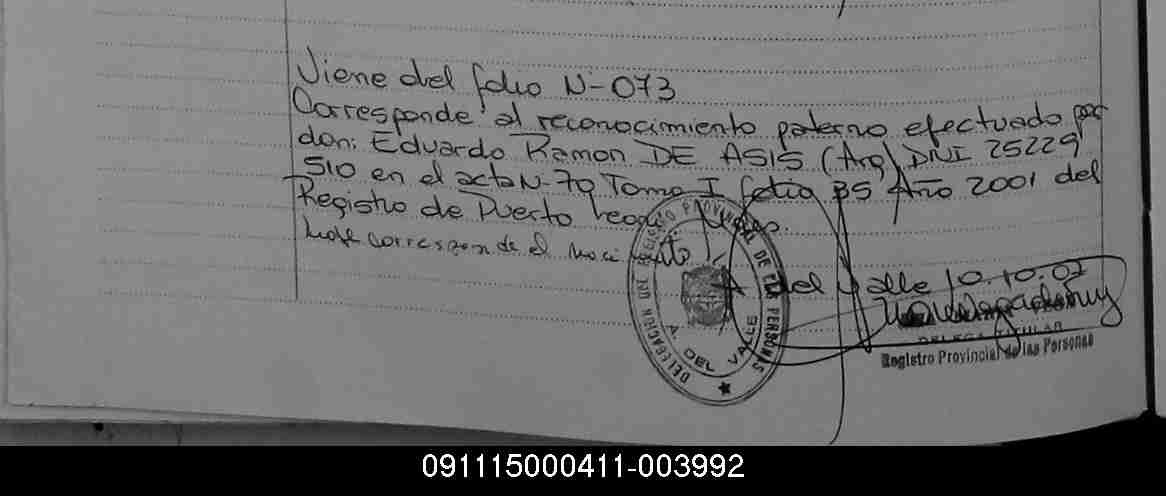 Viene del folio N-073
Corresponde al reconocimiento paterno efectuado por
don: Eduardo Ramon DE ASIS (Arg) DNI 25229
510 en el acta N-70 Tomo I folio 35 Año 2001 del
Registro de Puerto
corresponde el
A del Valle 10.10.02
DELEGACION
REGISTRO PROVINCIAL DE LAS PERSONAS
A. DEL VALLE
Registro Provincial de las Personas
091115000411-003992